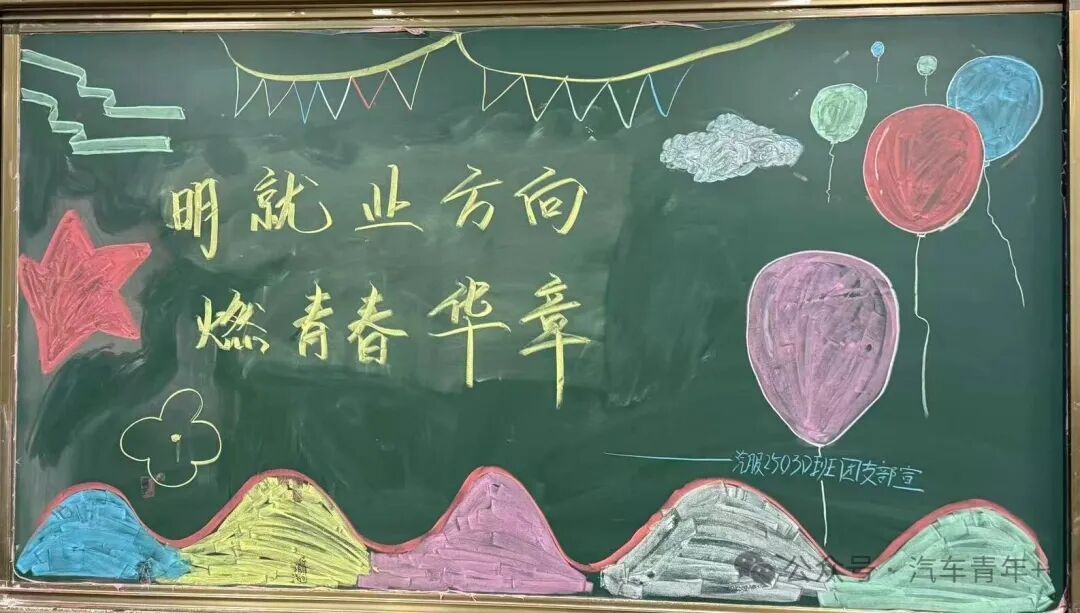 明就业方向
燃青春华章
——汽服2503D班团支部宣
公众号·汽车青年+